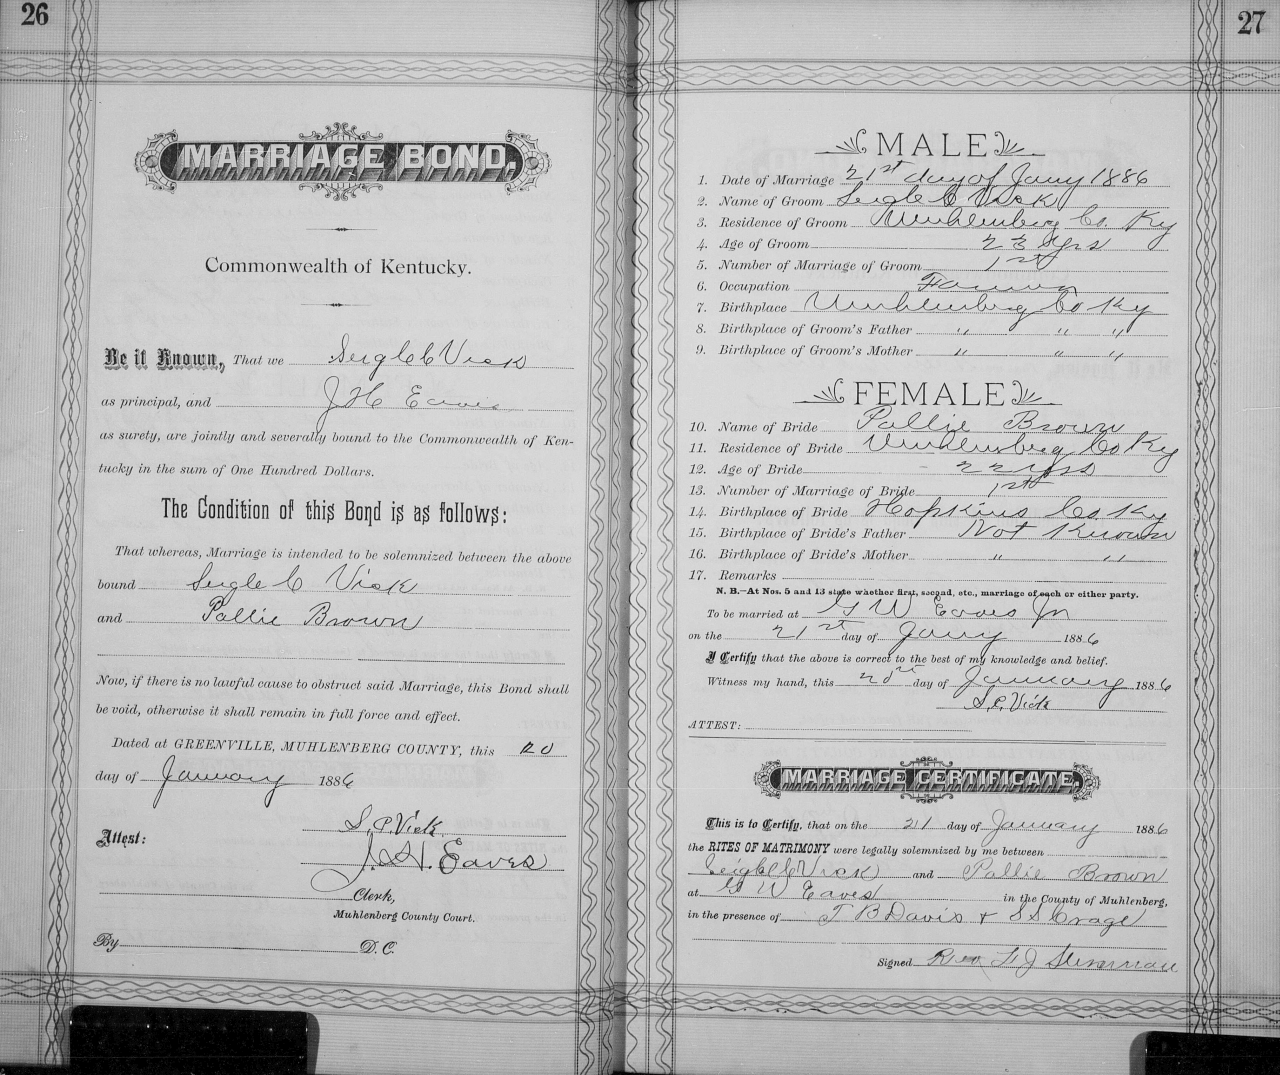 26
MARRIAGE BOND,
Commonwealth of Kentucky.
Be it Known, That we Seigle C Vick
as principal, and J H Eaves
as surety, are jointly and severally bound to the Commonwealth of Ken-
tucky in the sum of One Hundred Dollars.
The Condition of this Bond is as follows:
That whereas, Marriage is intended to be solemnized between the above
bound Seigle C Vick
and Pallie Brown
Now, if there is no lawful cause to obstruct said Marriage, this Bond shall
be void, otherwise it shall remain in full force and effect.
Dated at GREENVILLE, MUHLENBERG COUNTY, this 20
day of January 1886
S. C. Vick
Attest:
J. H. Eaves
Clerk,
Muhlenberg County Court.
By D. C.
27
MALE
1. Date of Marriage 21st day of Jany 1886
2. Name of Groom Seigle C Vick
3. Residence of Groom Muhlenberg Co. Ky
4. Age of Groom 23 yrs
5. Number of Marriage of Groom 1st
6. Occupation Farmer
7. Birthplace Muhlenberg Co Ky
8. Birthplace of Groom's Father " " "
9. Birthplace of Groom's Mother " " "
FEMALE
10. Name of Bride Pallie Brown
11. Residence of Bride Muhlenberg Co Ky
12. Age of Bride 22 yrs
13. Number of Marriage of Bride 1st
14. Birthplace of Bride Hopkins Co. Ky
15. Birthplace of Bride's Father Not Known
16. Birthplace of Bride's Mother " "
17. Remarks
N. B.—At Nos. 5 and 13 state whether first, second, etc., marriage of each or either party.
To be married at G W Eaves Jr
on the 21st day of Jany 1886
I Certify that the above is correct to the best of my knowledge and belief.
Witness my hand, this day of January 1886
S. C. Vick
ATTEST:
MARRIAGE CERTIFICATE.
This is to Certify, that on the 21 day of January 1886
the RITES OF MATRIMONY were legally solemnized by me between
Seigle C Vick and Pallie Brown
at G W Eaves in the County of Muhlenberg,
in the presence of T B Davis + S S
Signed Rev J